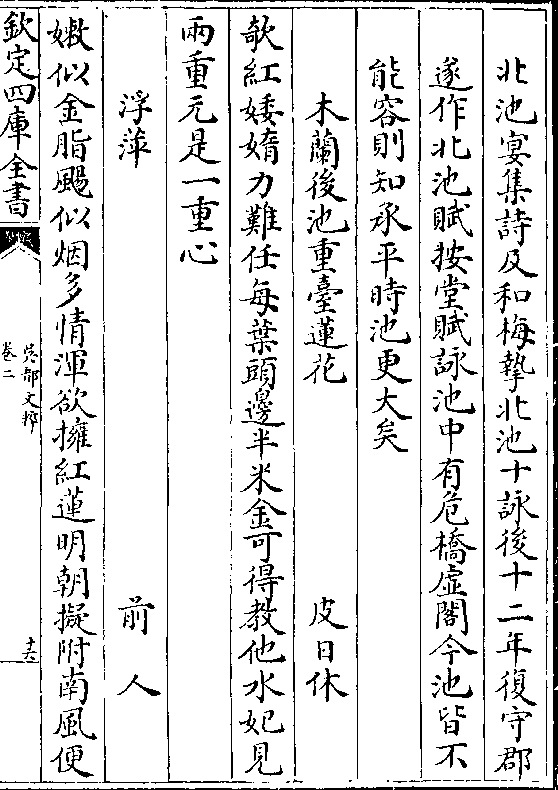 北池宴集詩及和梅摯北池十詠後十二年復守郡
遂作北池賦按堂賦詠池中有危橋虛閣今池皆不
能容則知承平時池更大矣
木蘭後池重臺蓮花 皮日休
欹紅婑媠力難任每葉頭邊半米金可得教他水妃見
兩重元是一重心
浮萍 前人
嫩似金脂颺似烟多情渾欲擁紅蓮明朝擬附南風便
欽定四庫全書
吳都文粹
卷二
十六